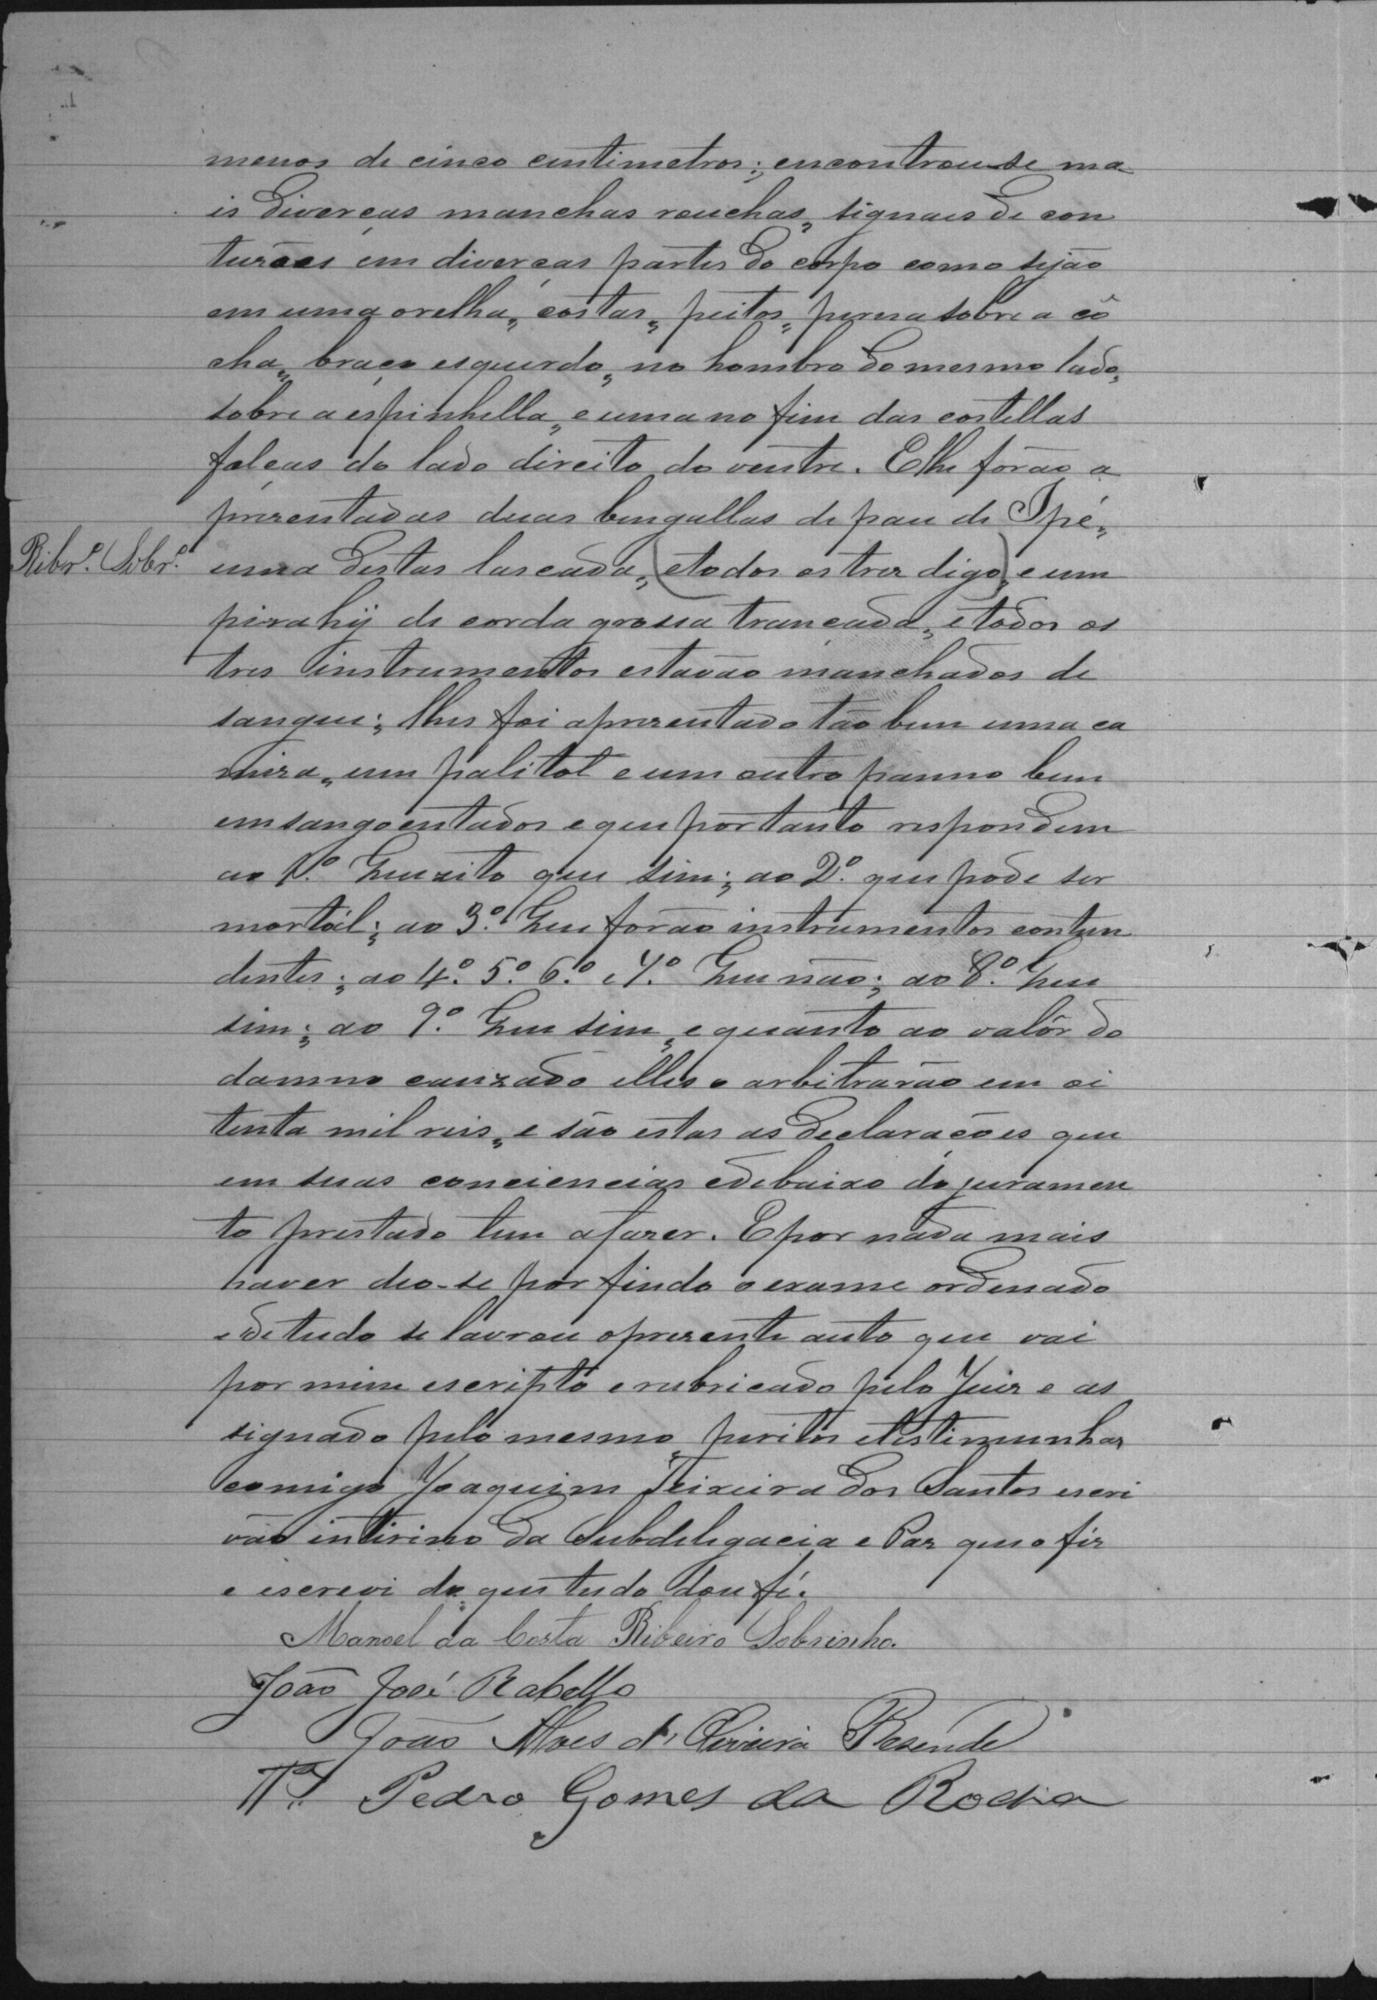 menos de cinco centimetros; encontrou-se ma
is diverças manchas rouchas, signaes de con
turões em diverças partes do corpo como sejão
em uma orelha, costas, peitos, perna sobre a cô
cha, braço esquerdo, no hombro do mesmo lado,
sobre a espinhella, e uma no fim das costellas
falças do lado direito do ventre. Elhe forão a
prezentadas duas bengallas de pau de Ipé,
Ribrº. Sobrº. uma destas lascada, (etodos os trez digo, e um
pirahÿ de corda grossa trançada, etodos os
tres instrumentos estavão manchados de
sangue; lhes foi aprezentado tão bem uma ca
miza, um palitot e um outro panno bem
emsangoentados e que portanto respondem
ao 1º. Quezito que sim; ao 2º. que pode ser
mortál; ao 3º. Que forão instrumentos contun
dentes; ao 4º. 5º. 6º. e 7º. Que não; ao 8º. Que
sim; ao 9º. Que sim, e quanto ao valôr do
damno cauzado elles o arbitrarão em oi
tenta mil reis, e são estas as declarações que
em suas conciencias edebaixo do juramen
to prestado tem afazer. E por nada mais
haver deo-se por findo o exame ordenado
e de tudo se lavrou oprezente auto que vai
por mim escripto e rubricado pelo Juiz e as
signado pelo mesmo, peritos etestimunhas
comigo Joaquim Teixeira dos Santos escri
vão intirino da Subdelegacia e Paz que o fiz
e escrevi do que tudo dou fé.
Manoel da Costa Ribeiro Sobrinho.
João José Rabello
João Alves de Oliveira Resende
Tª. Pedro Gomes da Rocha